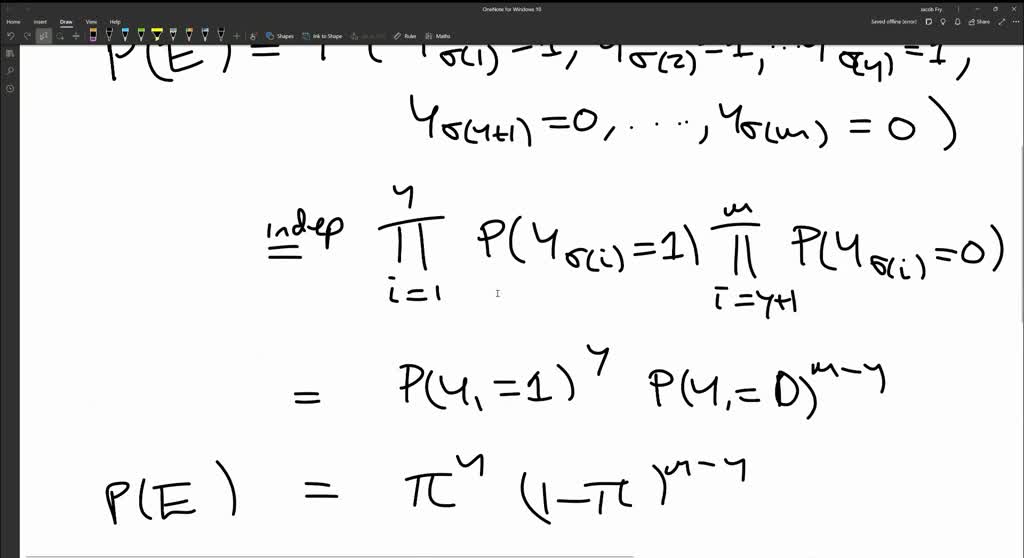 OneNote for Windows 10
Jacob Fry
Home Insert Draw View Help
Saved offline (error) Share
Shapes Ink to Shape Ruler Maths
P(E) = P(Y_σ(1) = 1, Y_σ(2) = 1, ... Y_σ(y) = 1,
Y_σ(y+1) = 0, ..., Y_σ(n) = 0)
indep = ∏_{i=1}^{y} P(Y_σ(i) = 1) ∏_{i=y+1}^{n} P(Y_σ(i) = 0)
= P(Y_1 = 1)^y P(Y_1 = 0)^{n-y}
P(E) = π^y (1-π)^{n-y}